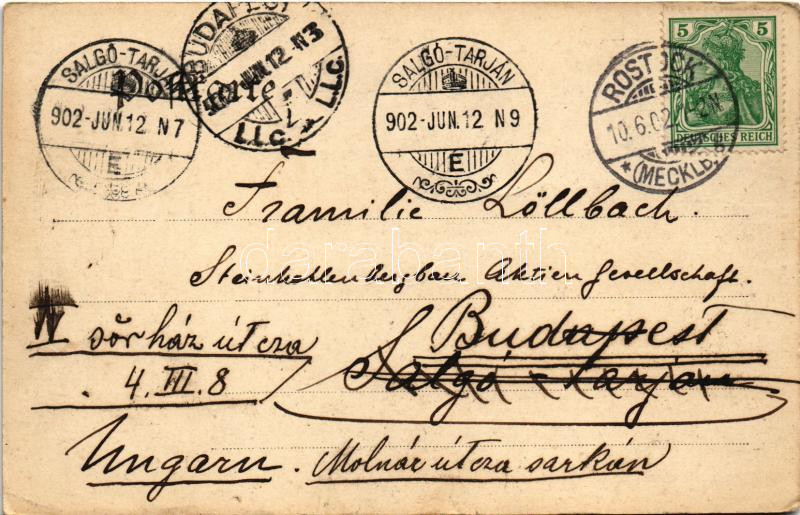 SALGÓ-TARJÁN
902-JUN.12 N7
E
BUDAPEST
902 JUN.12 N3
I.L.C. ★ I.L.C.
SALGÓ-TARJÁN
902-JUN.12 N9
E
ROSTOCK
10.6.02
★ (MECKLB.)
5 5
DEUTSCHES REICH
Familie Löllbach.
Steinkohlenbergbau Aktien Gesellschaft.
Budapest
Salgó-Tarján
IV sőrház útcza
4. III. 8
Ungarn. Molnár útcza sarkán
darabanth